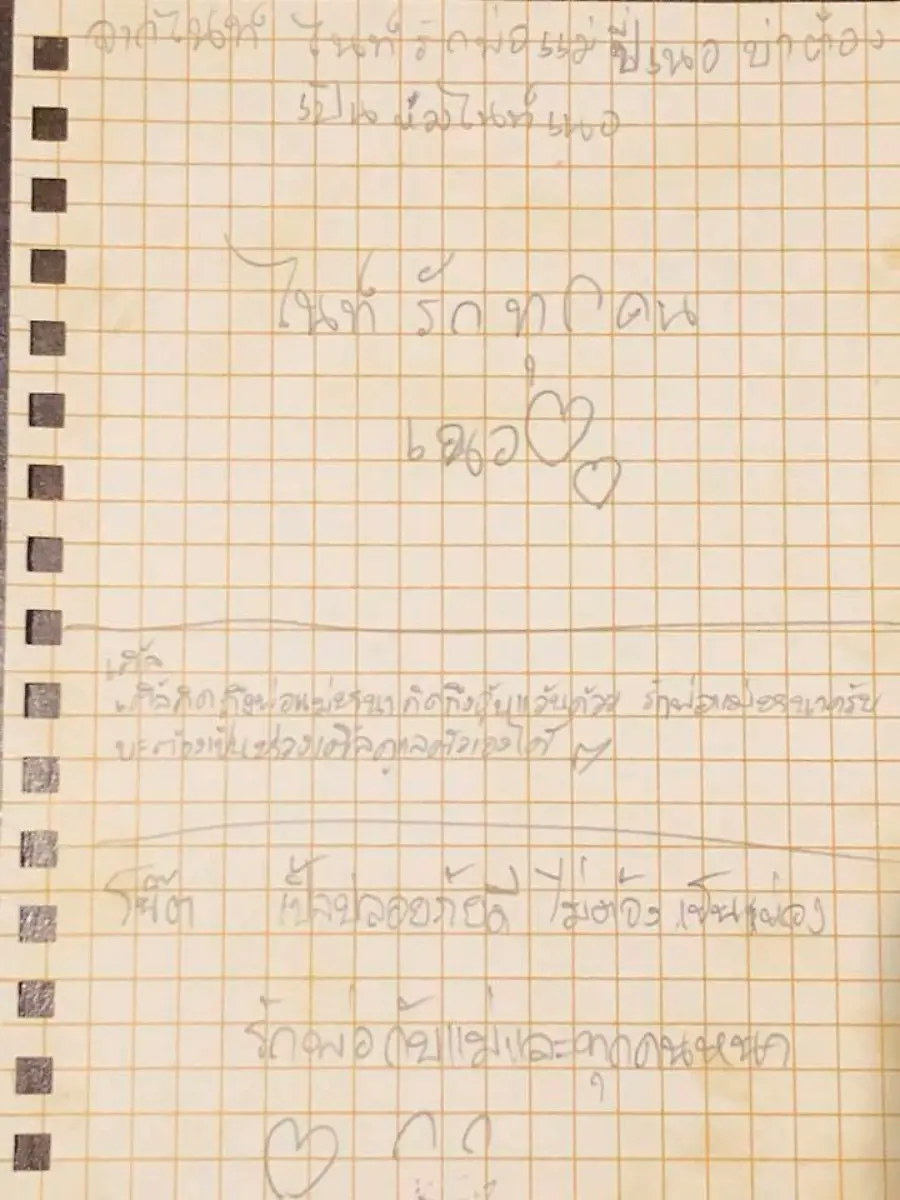 จากไนท์ ไนท์รักพ่อแม่พี่เนอ บ่าต้อง
เป็นห่วงไนท์เนอ
ไนท์ รัก ทุก คน
เนอ
เติ้ล
เติ้ลคิดถึงพ่อแม่ คิดถึง ด้วย รักพ่อแม่
บะต้องเป็นห่วงเติ้ลดูแลตัวเองได้
โน๊ต ปลอยภัยดี ไม่ต้องเป็นห่วง
รักพ่อกับแม่และทุกคนหนา